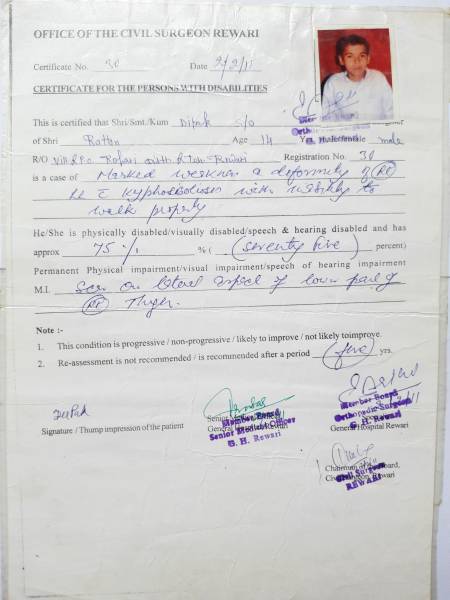 OFFICE OF THE CIVIL SURGEON REWARI
Certificate No. 30 Date 2/2/11
CERTIFICATE FOR THE PERSONS WITH DISABILITIES
This is certified that Shri/Smt./Kum Dipak S/o
of Shri Rattan Age 14 male
R/O Vill & P.o. Registration No. 30
is a case of Marked weakness & deformity of (Rt)
with inability to
walk properly
He/She is physically disabled/visually disabled/speech & hearing disabled and has
approx 75 % % (seventy five) percent)
Permanent Physical impairment/visual impairment/speech of hearing impairment
M.I. Scar on lateral aspect of lower part of
(Rt)
Note :-
1. This condition is progressive / non-progressive / likely to improve / not likely toimprove.
2. Re-assessment is not recommended / is recommended after a period (five) yrs.
Signature / Thump impression of the patient
Member Board
Senior Medical Officer
G. H. Rewari
Member Board
Orthopedic Surgeon
G. H. Rewari
General Hospital Rewari
Civil Surgeon
REWARI